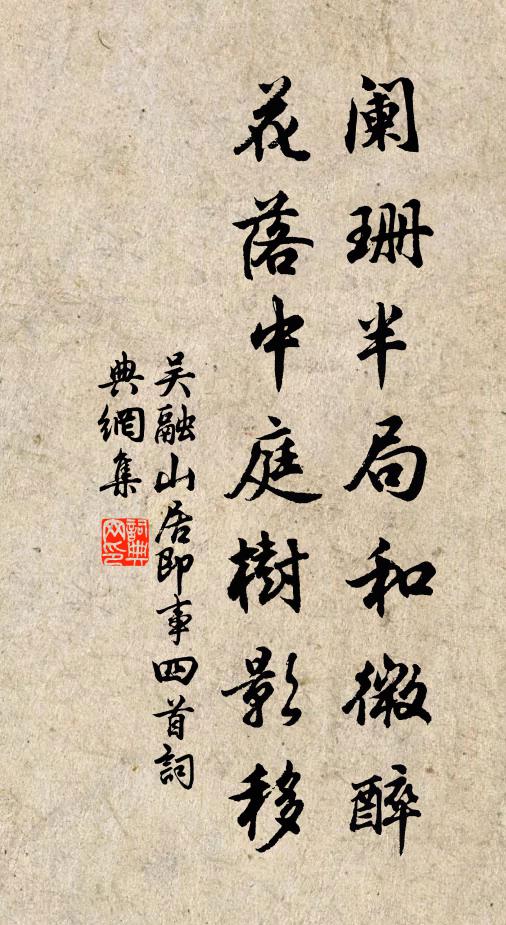 阑珊半局和微醉
花落中庭樹影移
吴融山居即事四首詞
典網集
詞典网印